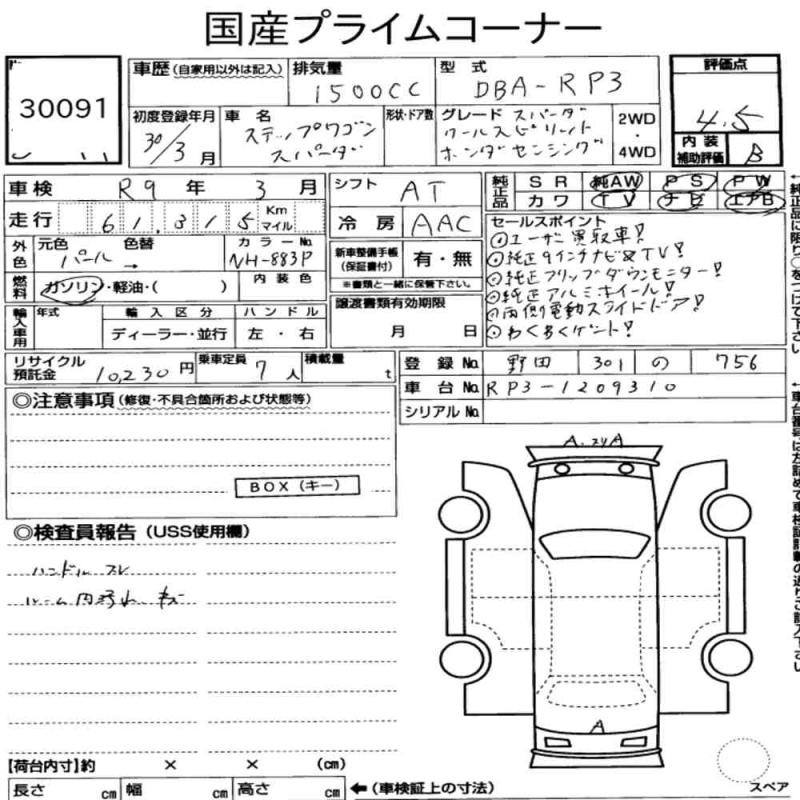 国産プライムコーナー
30091
車歴 (自家用以外は記入)
排気量 1500CC
型式 DBA-RP3
評価点 4.5
初度登録年月 30/3月
車名 ステップワゴン スパーダ
形状・ドア数
グレード スパーダ クールスピリット ホンダセンシング
2WD ・ 4WD
内装補助評価 B
車検 R9年 3月
シフト AT
純正品 SR 純AW PS PW
カワ TV ナビ エアB
走行 61,315 Km マイル
冷房 AAC
セールスポイント
①ユーザー買取車!
②純正9インチナビ&TV!
③純正フリップダウンモニター!
④純正アルミホイール!
⑤両側電動スライドドア!
⑥わくわくゲート!
外色 元色 パール 色替 → カラーNo. NH-883P
新車整備手帳(保証書付) 有・無
※書類と一緒に保管下さい。
燃料 ガソリン・軽油・( ) 内装色
譲渡書類有効期限
月 日
輸入車用 年式 輸入区分 ハンドル
ディーラー・並行 左・右
リサイクル預託金 10,230円
乗車定員 7人
積載量 t
登録No. 野田 301 の 756
車台No. RP3-1209310
シリアルNo.
◎注意事項 (修復・不具合箇所および状態等)
BOX (キー)
◎検査員報告 (USS使用欄)
ハンドルスレ
ルーム内汚れ キズ
A
A
A
スペア
【荷台内寸】約 × × (cm)
長さ cm 幅 cm 高さ cm ←(車検証上の寸法)
↑純正品に限り○をつけて下さい